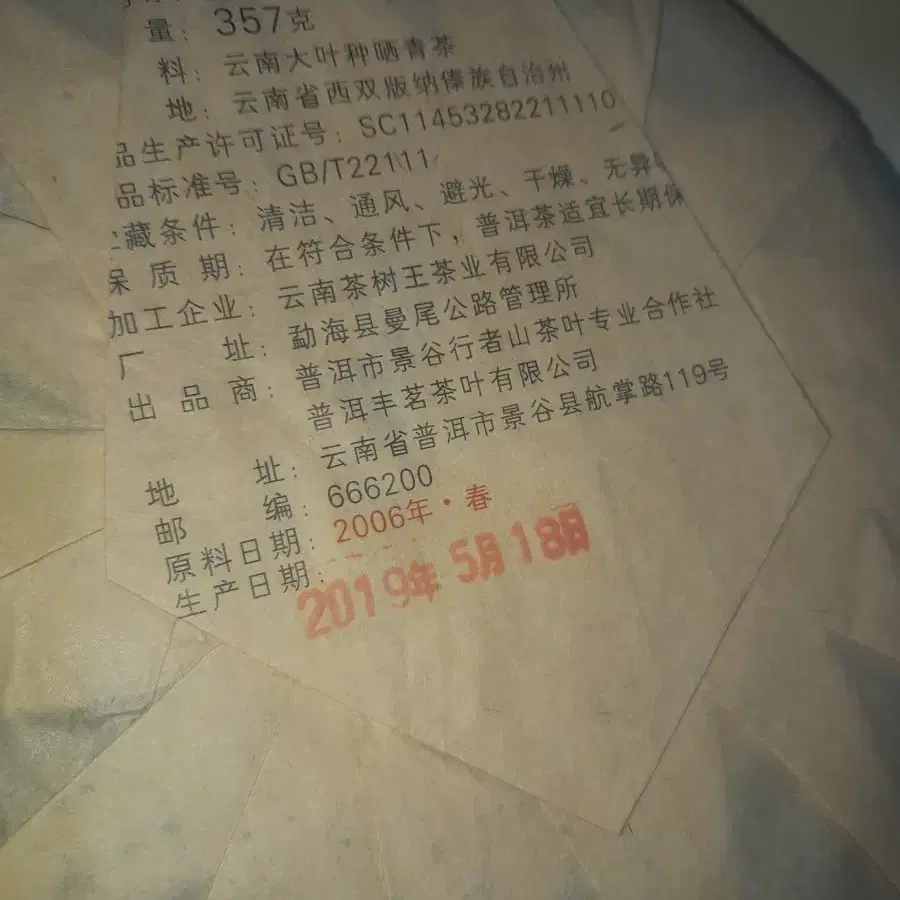 量：357克
料：云南大叶种晒青茶
地：云南省西双版纳傣族自治州
品生产许可证号：SC11453282211110
品标准号：GB/T22111
藏条件：清洁、通风、避光、干燥、无异
保质期：在符合条件下，普洱茶适宜长期保
加工企业：云南茶树王茶业有限公司
厂址：勐海县曼尾公路管理所
出品商：普洱市景谷行者山茶叶专业合作社
普洱丰茗茶叶有限公司
地址：云南省普洱市景谷县航掌路119号
邮编：666200
原料日期：2006年·春
生产日期：2019年5月18日